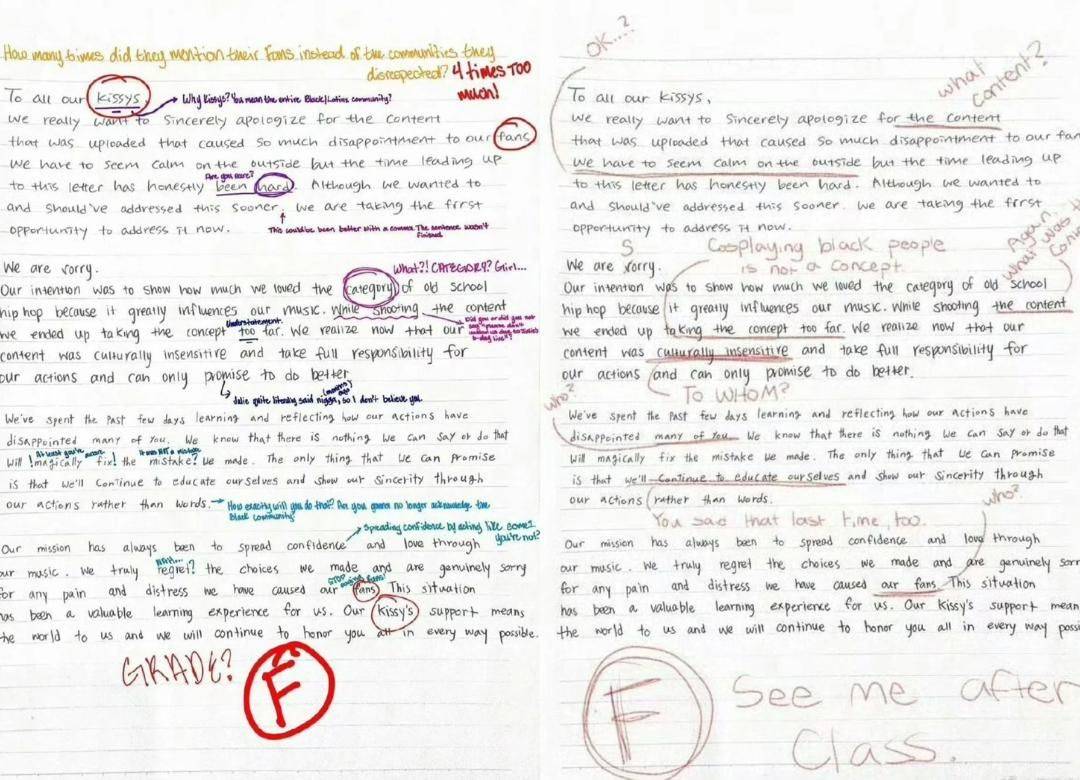 How many times did they mention their fans instead of the communities they
disrespected? 4 times TOO
much!
To all our Kissys,
Why Kissys? You mean the entire Black/Latinx community?
We really want to Sincerely apologize for the content
that was uploaded that caused so much disappointment to our fans
We have to seem calm on the outside but the time leading up
Are you sure?
to this letter has honestly been hard. Although we wanted to
and should've addressed this sooner. We are taking the first
opportunity to address it now.
This could've been better with a comma. The sentence wasn't
finished
We are sorry.
What?! CATEGORY? Girl...
Our intention was to show how much we loved the category of old school
hip hop because it greatly influences our music. While shooting the content
Understatement.
we ended up taking the concept too far. We realize now that our
content was culturally insensitive and take full responsibility for
our actions and can only promise to do better
Julie quite literally said nigga, so I don't believe you.
We've spent the past few days learning and reflecting how our actions have
disappointed many of you. We know that there is nothing we can say or do that
It was NOT a mistake
will !magically fix! the mistake? we made. The only thing that we can promise
is that we'll continue to educate ourselves and show our sincerity through
our actions rather than words.
How exactly will you do that? Are you gonna no longer acknowledge the
Black community?
Spreading confidence by acting like someone
you're not?
Our mission has always been to spread confidence and love through
our music. We truly regret? the choices we made and are genuinely sorry
STOP saying fans!
for any pain and distress we have caused our fans. This situation
has been a valuable learning experience for us. Our Kissy's support means
the world to us and we will continue to honor you all in every way possible.
GRADE? F
OK....?
what
content?
To all our Kissys,
We really want to Sincerely apologize for the content
that was uploaded that caused so much disappointment to our fan
We have to seem calm on the outside but the time leading up
to this letter has honestly been hard. Although we wanted to
and should've addressed this sooner. We are taking the first
opportunity to address it now.
Again,
what was t
S
Cosplaying black people
is not a concept.
We are sorry.
Our intention was to show how much we loved the category of old school
hip hop because it greatly influences our music. While shooting the content
we ended up taking the concept too far. We realize now that our
content was culturally insensitive and take full responsibility for
our actions and can only promise to do better.
who?
TO WHOM?
We've spent the past few days learning and reflecting how our actions have
disappointed many of you. We know that there is nothing we can say or do that
will magically fix the mistake we made. The only thing that we can promise
is that we'll continue to educate ourselves and show our sincerity through
our actions rather than words.
who?
You said that last time, too.
Our mission has always been to spread confidence and love through
our music. We truly regret the choices we made and are genuinely sorry
for any pain and distress we have caused our fans. This situation
has been a valuable learning experience for us. Our Kissy's support mean
the world to us and we will continue to honor you all in every way possi
F See me after
Class.